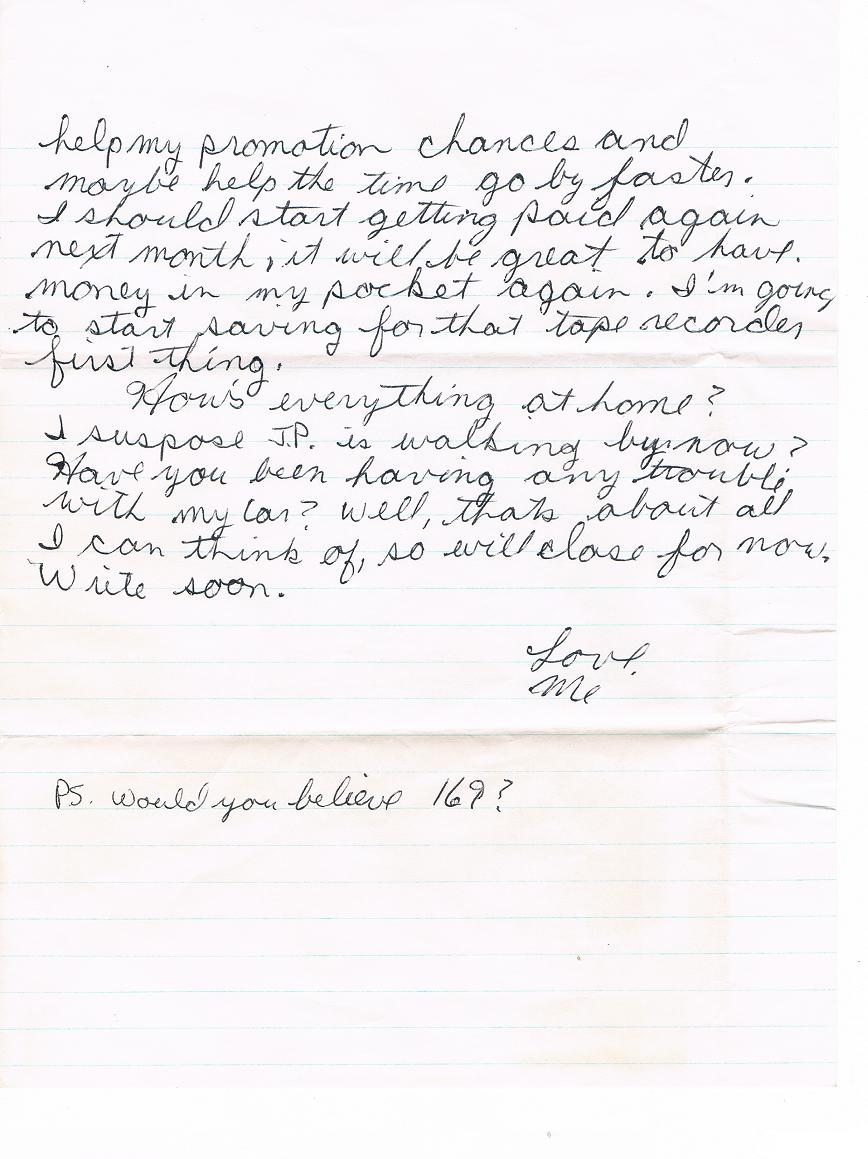 help my promotion chances and
maybe help the time go by faster.
I should start getting paid again
next month, it will be great to have
money in my pocket again. I'm going
to start saving for that tape recorder
first thing.
How's everything at home?
I suspose J.P. is walking by now?
Have you been having any trouble
with my car? Well, thats about all
I can think of, so will close for now.
Write soon.
Love,
Me
PS. Would you believe 169?